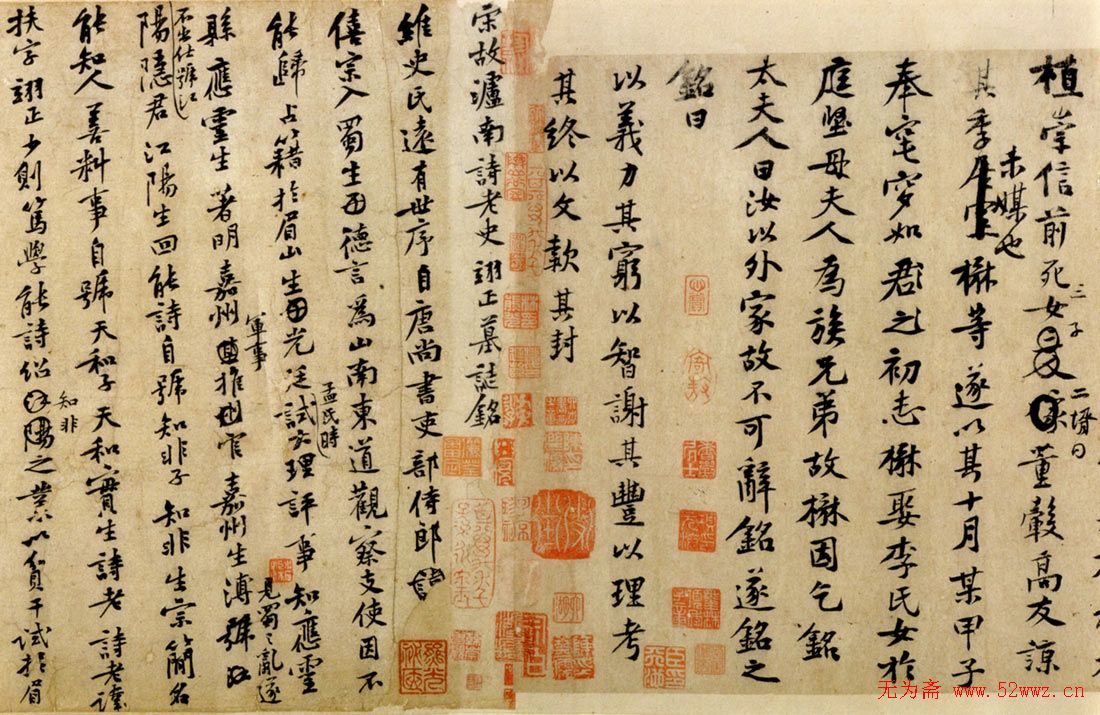 植崇信前死女三子二壻曰董轂高友諒
其季未媒也楙等遂以其十月某甲子
奉窀穸如君之初志楙娶李氏女於
庭堅母夫人為族兄弟故楙因乞銘
太夫人曰汝以外家故不可辭銘遂銘之
銘曰
以義力其窮以智謝其豐以理考
其終以文款其封
宋故瀘南詩老史翊正墓誌銘
維史氏遠有世序自唐尚書吏部侍郎
僖宗入蜀生德言為山南東道觀察支使因不
能歸占籍於眉山生光廷孟氏時試大理評事知應靈
縣見蜀之亂遂應靈生著明嘉州軍事推官嘉州生溥號江
不出仕號江
陽隱君江陽生回能詩自號知非子知非生宗簡名
能知人善料事自號天和子天和實生詩老詩老諱
扶字翊正少則篤學能詩紹知非之業以貢干試於眉
无为斋 www.52wwz.cn